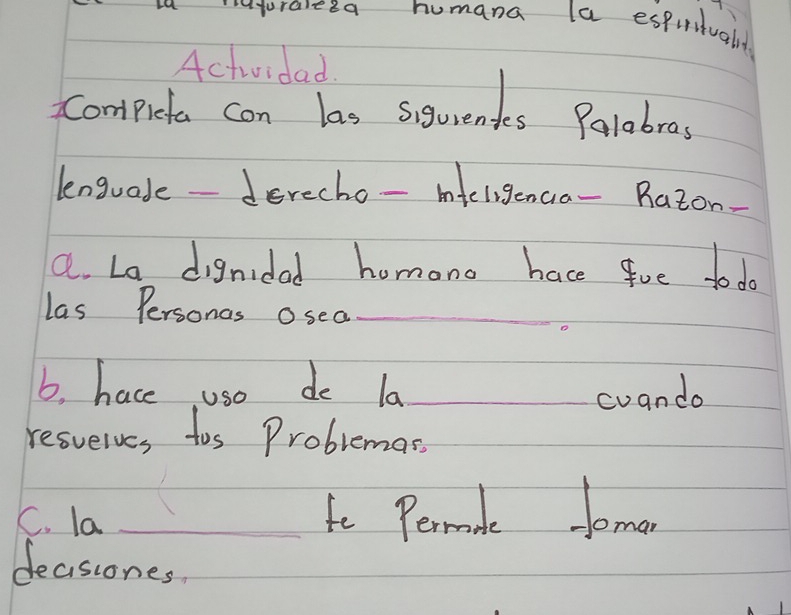 la naturaleza humana la espiritualid
Actividad.
Completa con las siguientes Palabras
lenguaje - derecho - inteligencia - Razon -
a. La dignidad humana hace que todo
las Personas o sea ________.
b. hace uso de la ________ cuando
resuelves tus Problemas.
c. la ________ te Permite tomar
decisiones.